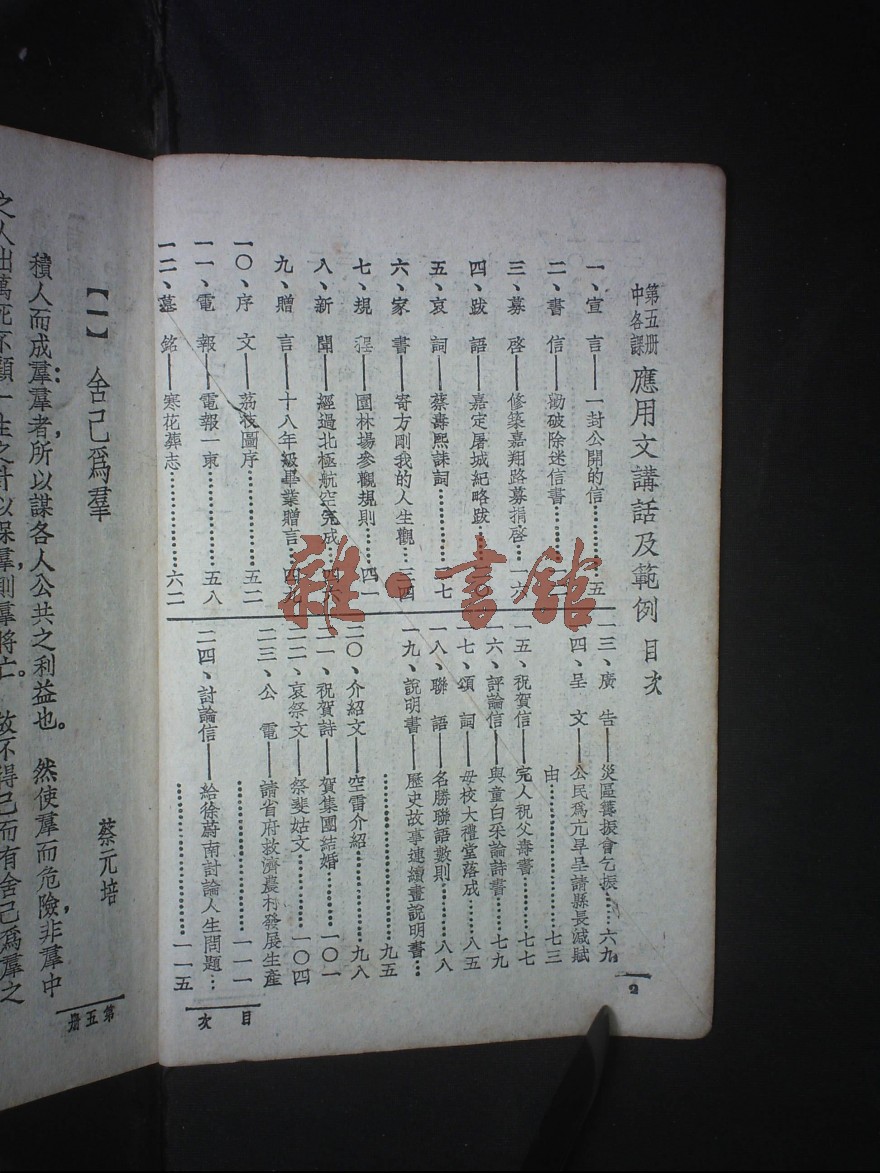 第五册
中各課
應用文講話及範例 目次
一、宣言——一封公開的信……五
二、書信——勸破除迷信書……
三、募啓——修築嘉翔路募捐啓…一六
四、跋語——嘉定屠城紀略跋……二〇
五、哀詞——蔡壽熙誄詞……二七
六、家書——寄方剛我的人生觀…三四
七、規程——園林場參觀規則……四一
八、新聞——經過北極航空完成…四六
九、贈言——十八年級畢業贈言…四九
一〇、序文——荔枝圖序……五二
一一、電報——電報一束……五八
一二、墓銘——寒花葬志……六二
一三、廣告——災區籌振會乞振……六九
一四、呈文——公民爲亢旱呈請縣長減賦
由……七三
一五、祝賀信——完人祝父壽書……七七
一六、評論信——與童白采論詩書…七九
一七、頌詞——母校大禮堂落成……八五
一八、聯語——名勝聯語數則……八八
一九、說明書——歷史故事連續畫說明書…
……九五
二〇、介紹文——空雷介紹……九八
二一、祝賀詩——賀集團結婚……一〇一
二二、哀祭文——祭斐姑文……一〇四
二三、公電——請省府救濟農村發展生產
……一一一
二四、討論信——給徐蔚南討論人生問題…
……一一五
目次
2
【一】 舍己爲羣
蔡元培
積人而成羣羣者所以謀各人公共之利益也。然使羣而危險，非羣中
之人出萬死不顧一生之計以保羣，則羣將亡。故不得已而有舍己爲羣之
第五册
雜·書館